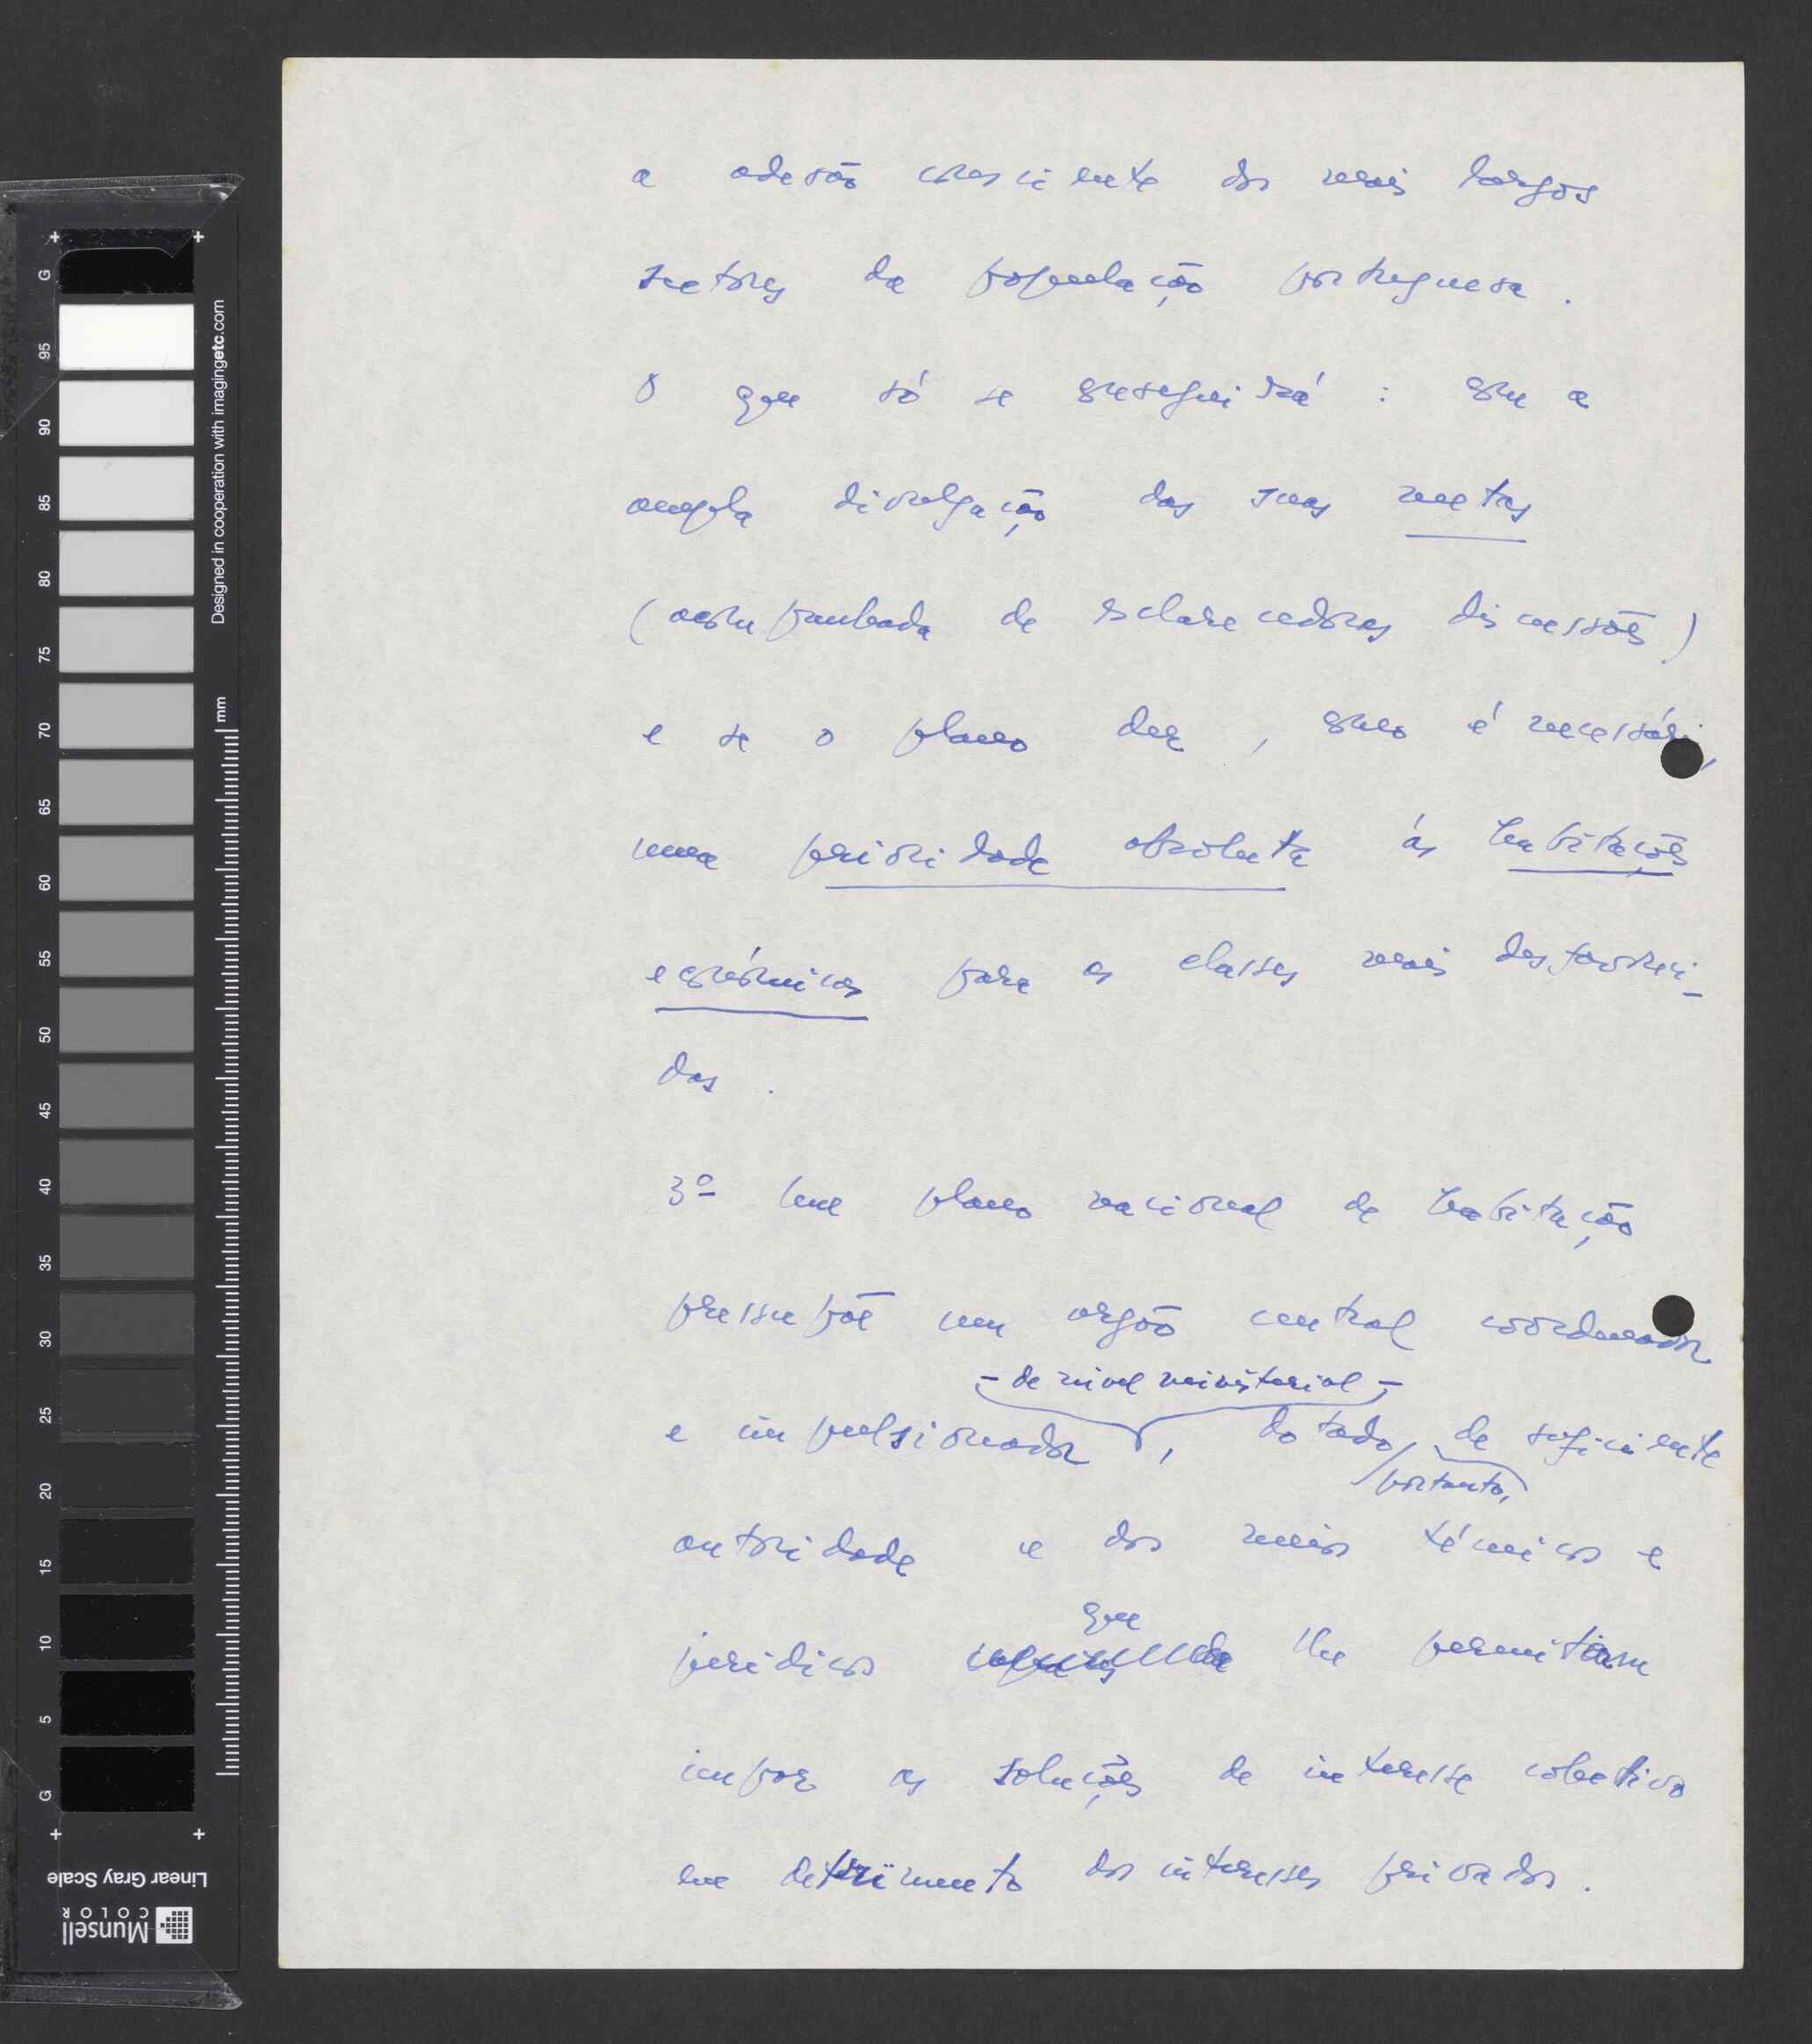 a adesão consciente dos mais largos
sectores da população portuguesa.
O que só se conseguirá: com a
ampla divulgação das suas metas
(acompanhada de esclarecedoras discussões)
e se o plano der, como é necessário,
uma prioridade absoluta às habitações
económicas para as classes mais desfavoreci-
das.
3º Um plano nacional de habitação
pressupõe um orgão central coordenador
- de nivel ministerial -
e impulsionador, dotado de suficiente
portanto,
autoridade e dos meios técnicos e
que
juridicos lhe permitam
impor as soluções de interesse colectivo
em detrimento dos interesses privados.
G
95
90
85
80
75
70
65
60
55
50
45
40
35
30
25
20
15
10
5
G
mm
Designed in cooperation with imagingetc.com
Linear Gray Scale
Munsell
COLOR